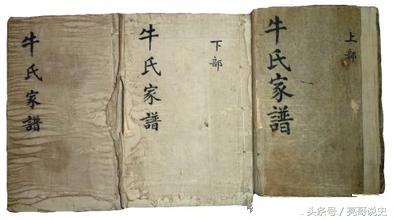 牛氏家譜
牛氏家譜
下部
牛氏家譜
上部
头条号/亮哥说史